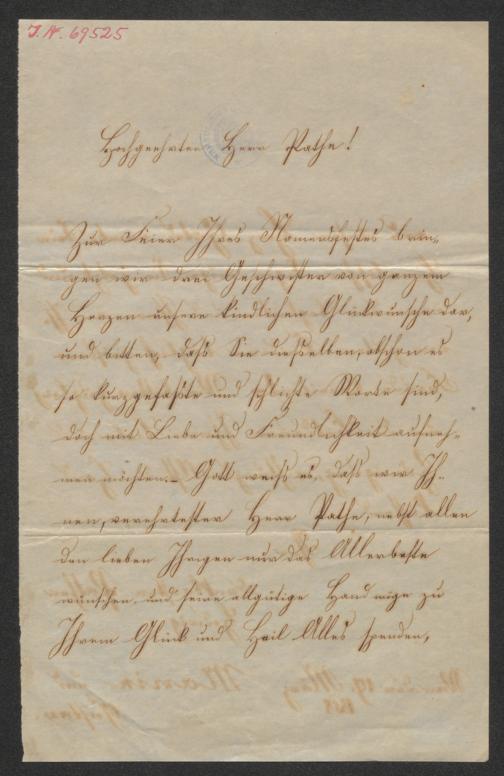 I. N. 69525
Hochgeehrter Herr Pathe!
Zur Feier Ihres Namensfestes brin-
gen wir drei Geschwister von ganzem
Herzen unsere kindlichen Glückwünsche dar,
und bitten, daß Sie dieselben, obschon es
so kurzgefaßte und schlichte Worte sind,
doch mit Liebe und Freundlichkeit aufneh-
men möchten.– Gott weiß es, daß wir Ih-
nen, verehrtester Herr Pathe, nebst allen
den lieben Ihrigen nur das Allerbeste
wünschen, und seine allgütige Hand möge zu
Ihrem Glück und Heil Alles spenden,